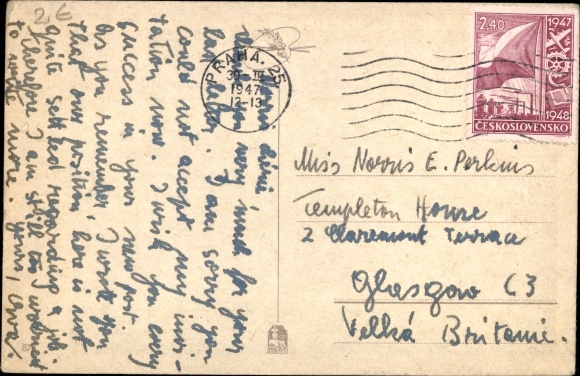 26
Thank you very much for your
last letter. I am sorry you
could not accept my invi-
tation now. I wish you every
success in your new post.
As you remember, I wrote you
that our position here is not
quite settled regarding a job.
Therefore I am still too worried
to write more. Yours,
PRAHA. 25
30-III
1947
12-13
2.40
1947
1948
ČESKOSLOVENSKO
Miss Norris E. Perkins
Templeton House
2 Claremont Terrace
Glasgow C3
Velká Britanie.